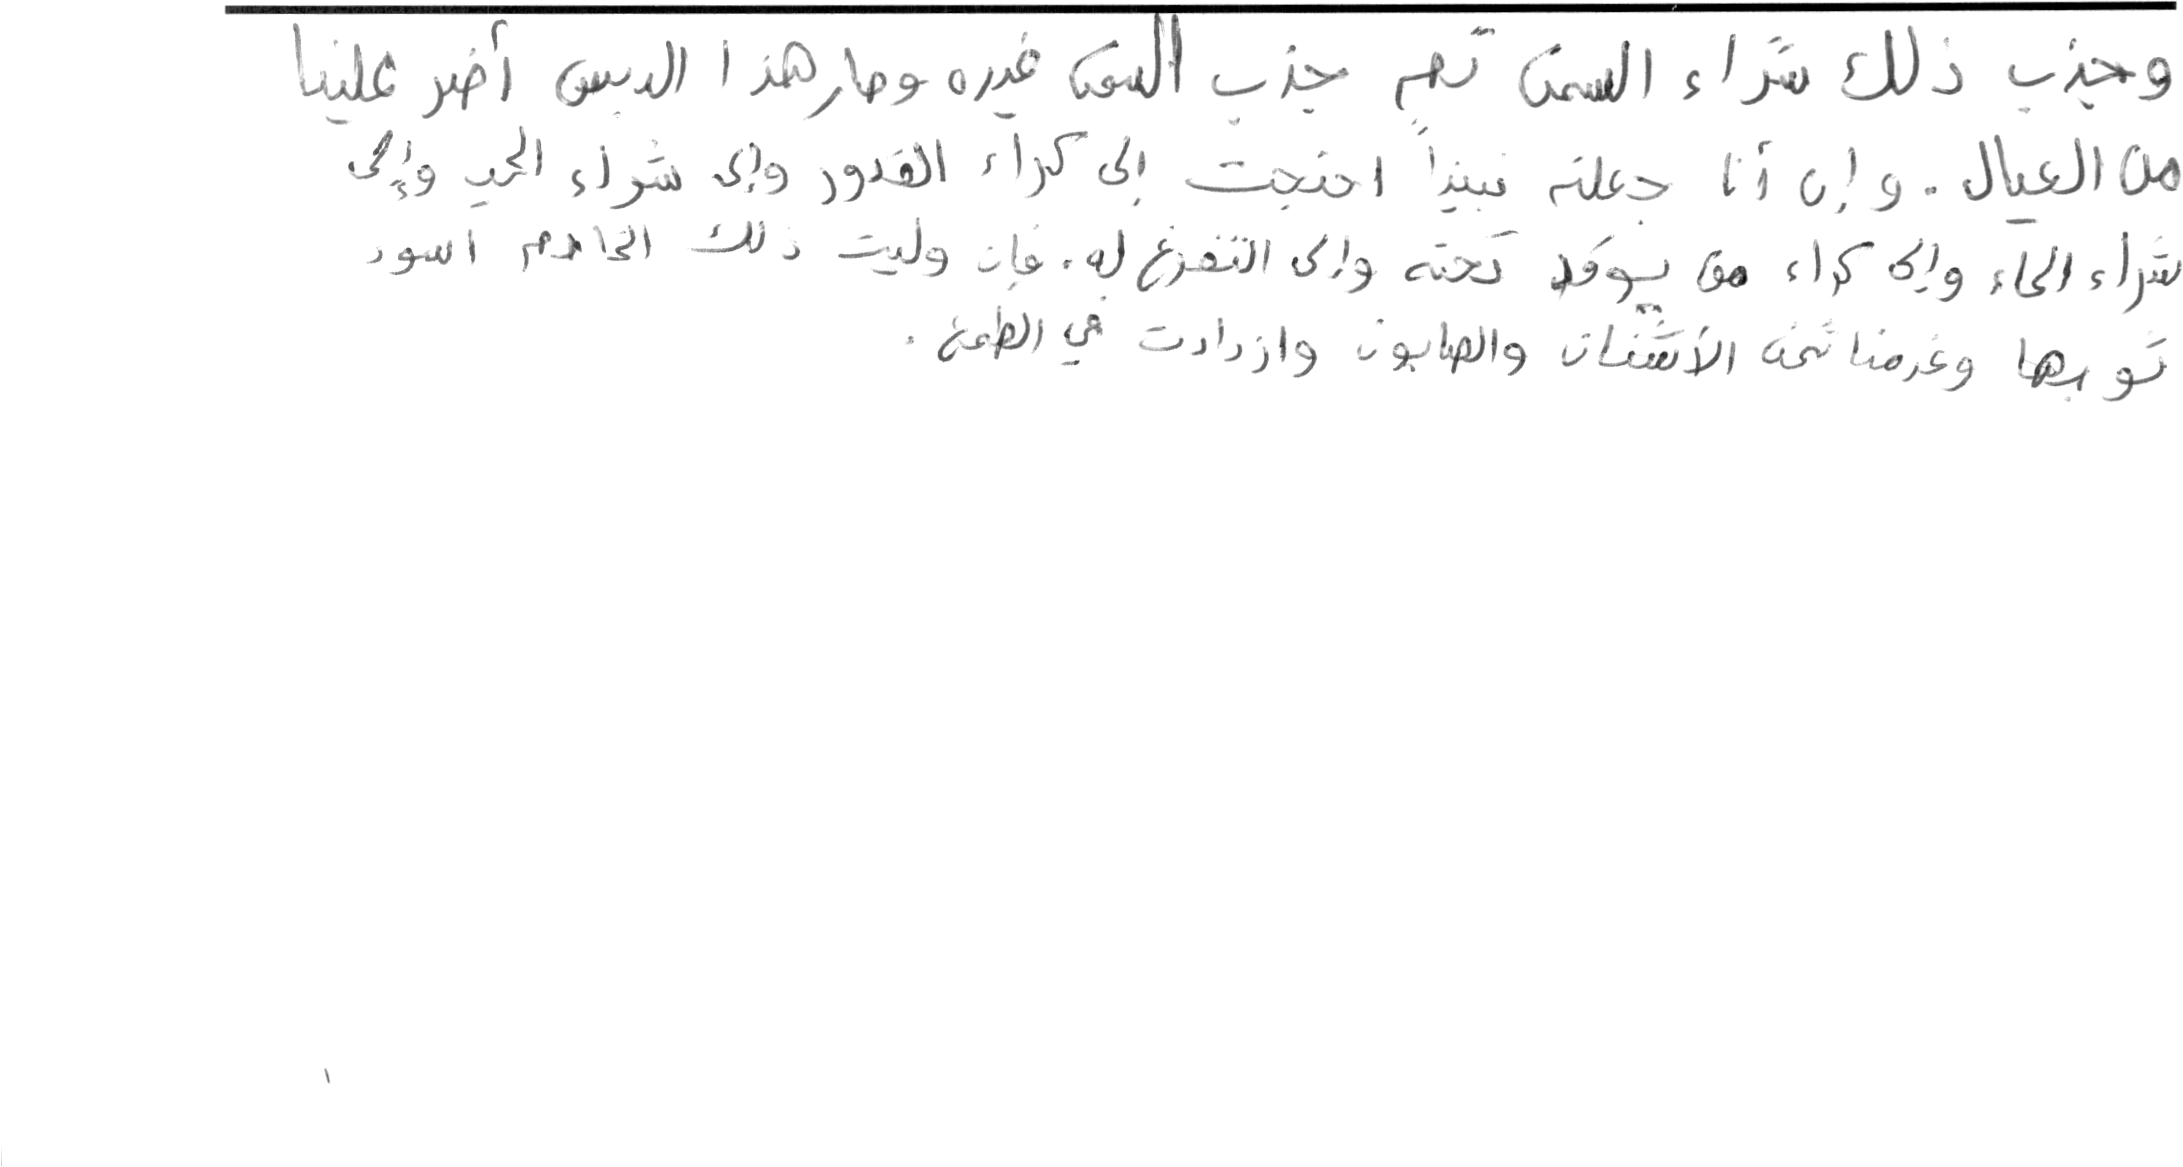 وجذب ذلك شراء السمن ثم جذب السمن غيره وصار هذا الدبس أضر علينا
من العيال. وإن أنا جعلته نبيذاً احتجت إلى كراء القدور وإلى شراء الحب وإلى
شراء الماء وإلى كراء من يوقد تحته وإلى التفرغ له. فإن وليت ذلك الخادم اسود
ثوبها وغرمنا ثمن الأشنان والصابون وازدادت في الطمع.